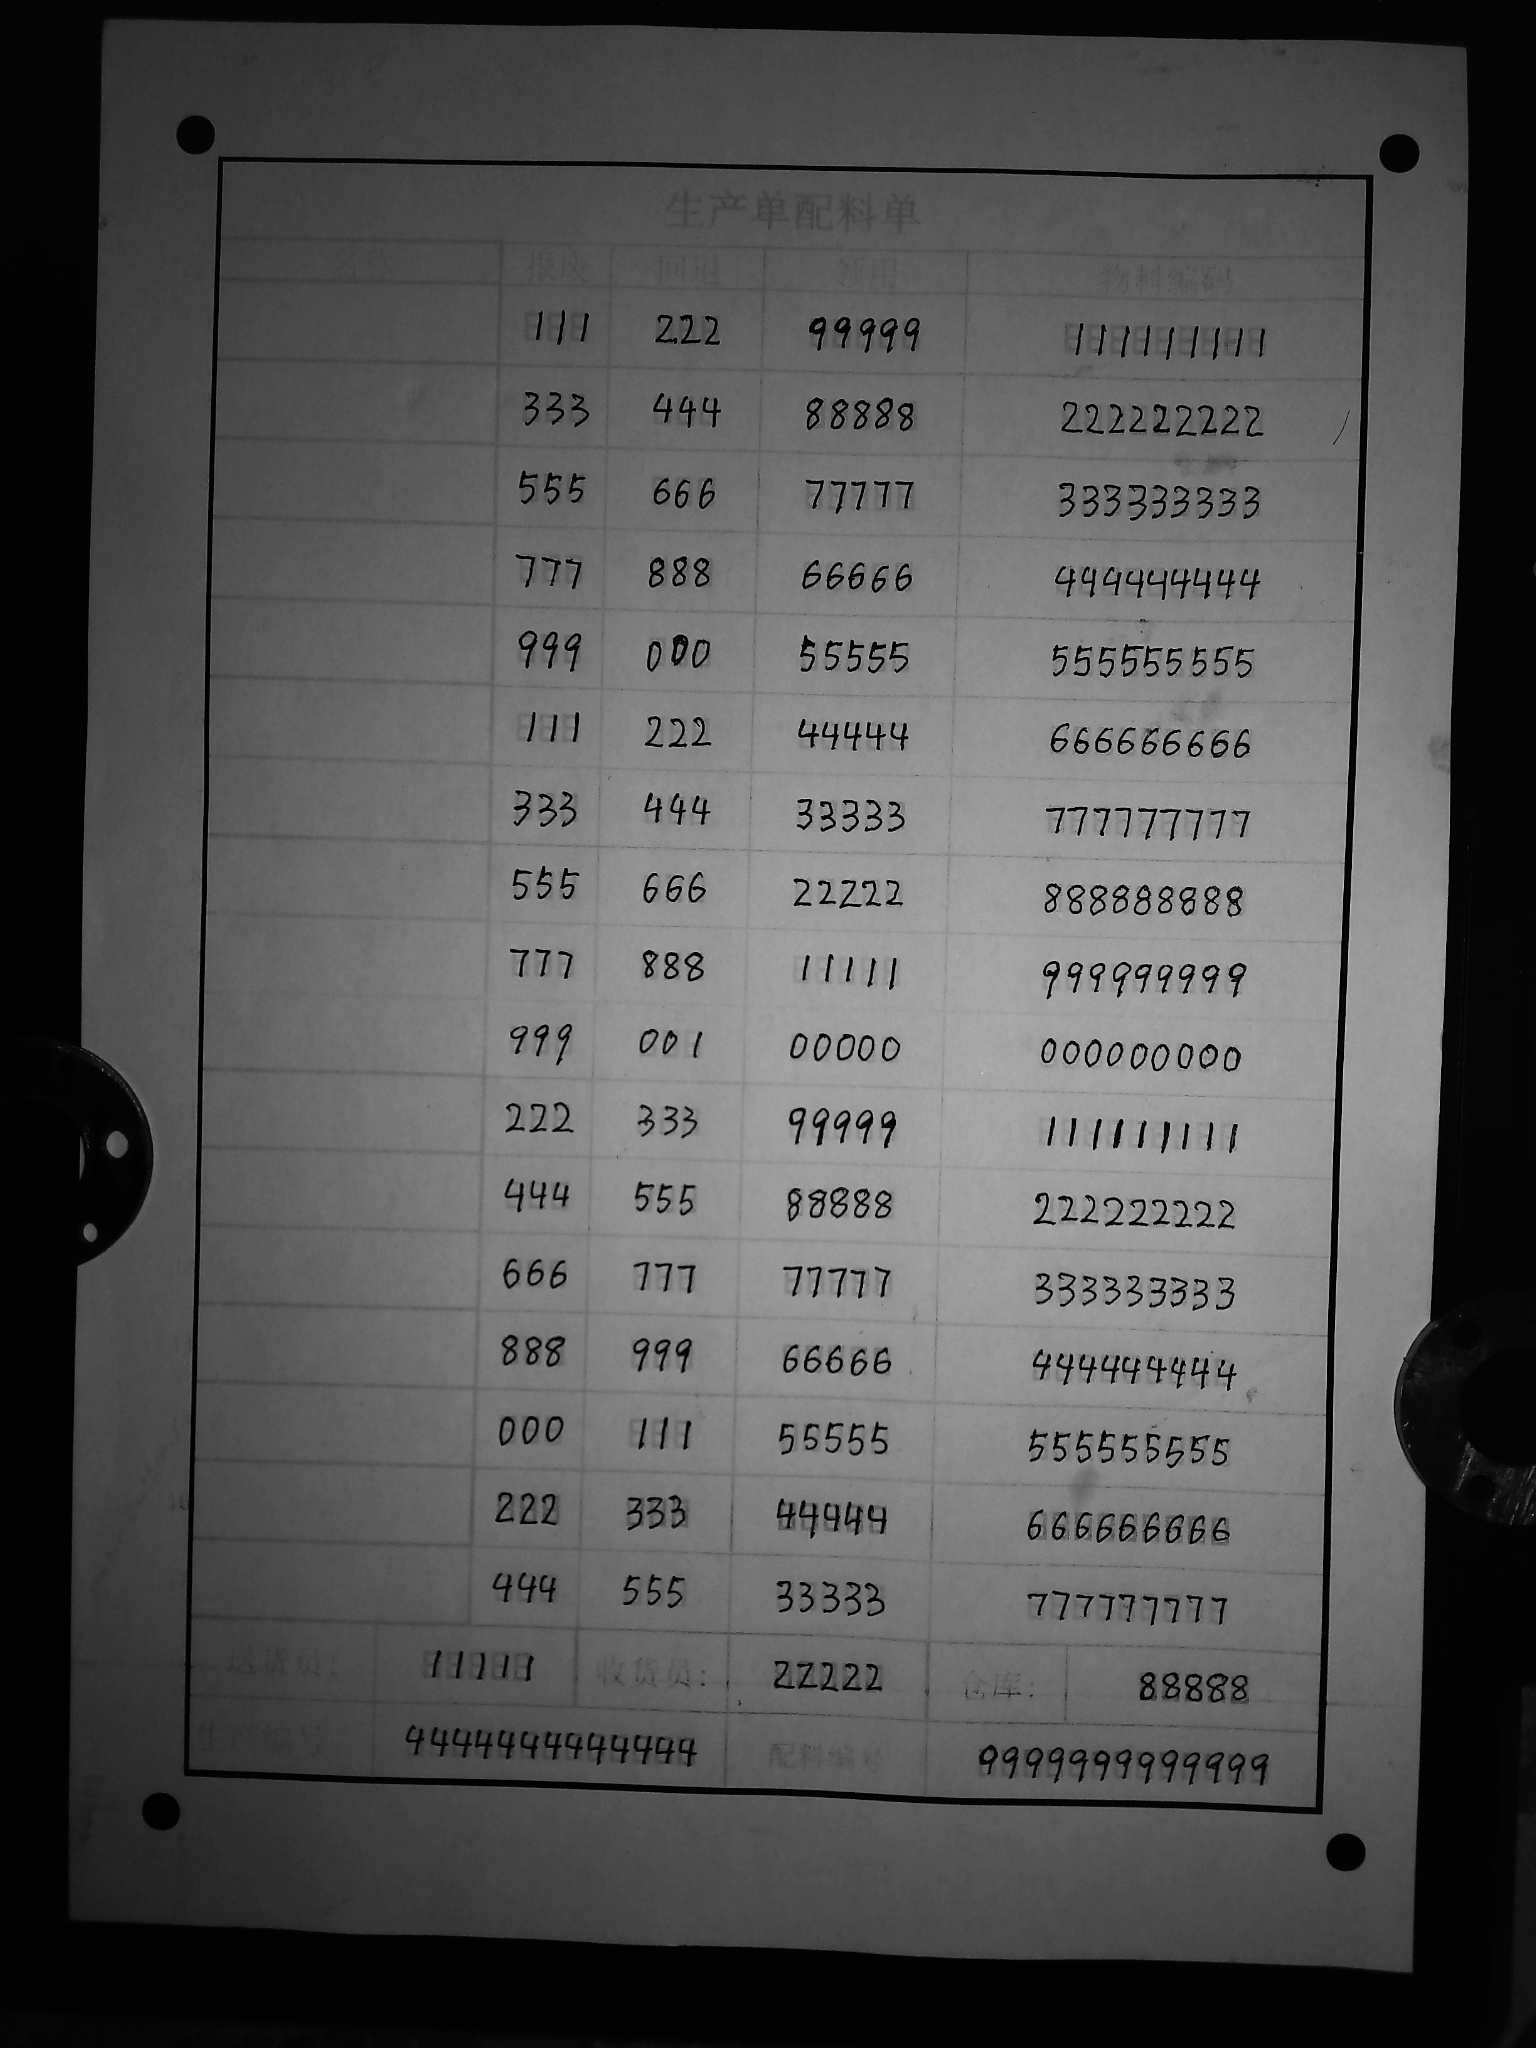 生产单配料单
名称 报废 回退 领用 物料编码
111 222 99999 111111111
333 444 88888 222222222
555 666 77777 333333333
777 888 66666 444444444
999 000 55555 555555555
111 222 44444 666666666
333 444 33333 777777777
555 666 22222 888888888
777 888 11111 999999999
999 001 00000 000000000
222 333 99999 111111111
444 555 88888 222222222
666 777 77777 333333333
888 999 66666 444444444
000 111 55555 555555555
222 333 44444 666666666
444 555 33333 777777777
送货员: 11111 收货员: 22222 仓库: 88888
生产编号 4444444444444 配料编号 9999999999999